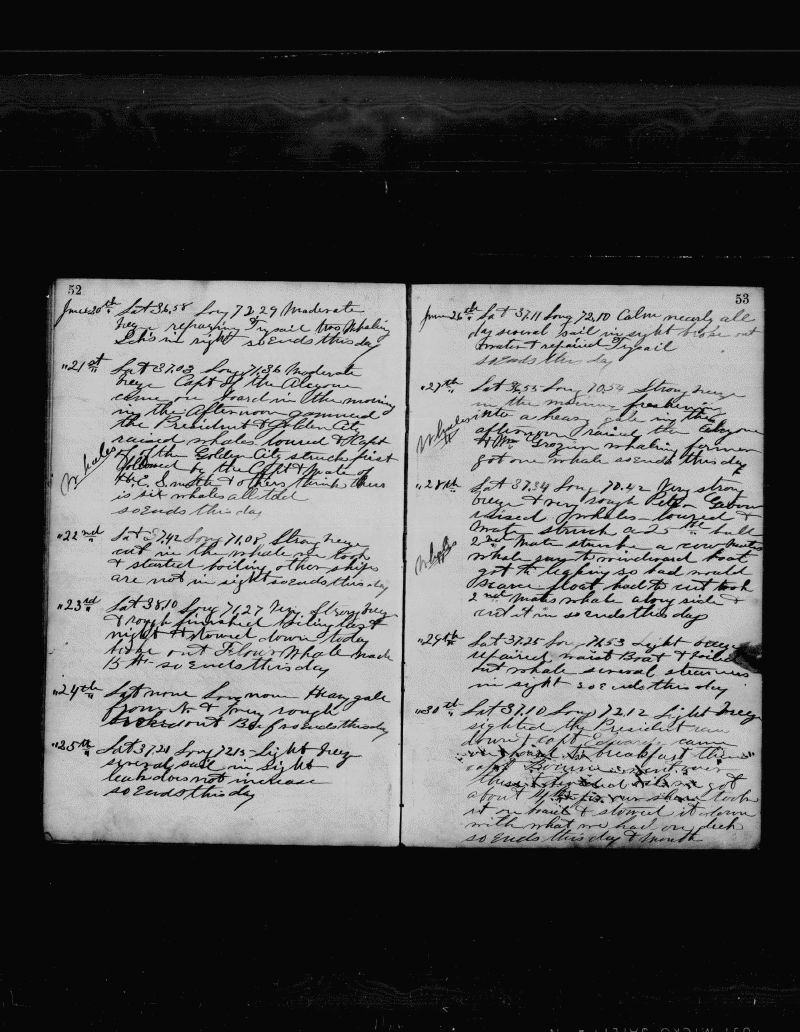 52
June 20th Lat 36,58 Long 72,29 Moderate
breze repairing Trysail two Whaling
in sight so Ends this day
"21st Lat 37,03 Long 71,36 Moderate
breze Capt of the Alcyone
came on board in the morning
in the Afternoon gammed
the President & Golden City
raised whales lowered & Capt
of the Golden City struck first
Whales
followed by the Capt & Mate of
& others think there
is six whales all told
so Ends this day
"22nd Lat 37,42 Long 71,08 Strong breze
cut in the whale we took
& started boiling other ships
are not in sight so Ends this day
"23rd Lat 38,10 Long 71,27 Very strong breze
& rough finished boiling last
night & stowed down today
broke out Flour Whale made
15 so Ends this day
"24th Lat none Long none Heavy gale
from N & very rough
out Beef so Ends this day
"25th Lat 37,21 Long 72,13 Light breze
several sail in sight
leak does not increase
so Ends this day
53
June 26th Lat 37,11 Long 72,10 Calm nearly all
day several sail in sight broke out
water & repaired Trysail
so Ends this day
"27th Lat Long 70,54 Strong breze
in the morning freshening
into a heavy gale in the
Whales
afternoon raised the Alcyone
& Wm Grozier whaling former
got one whale so Ends this day
"28th Lat 37,34 Long 70,42 Very strong
breze & very rough
raised whales lowered &
Mate struck a 25 bull
2nd Mate struck a cow Mates
Whales
whale ran to windward boat
got to leaking so bad would
scarce float had to cut took
2nd Mates whale along side &
cut it in so Ends this day
"29th Lat 37,25 Long 71,53 Light breze
repaired waist Boat & boiled
out whale several steamers
in sight so Ends this day
"30th Lat 37,10 Long 72,12 Light breze
sighted the President ran
down Capt Edwards came
on board to breakfast then
Capt went over
got
about our share took
it on board & stowed it down
with what we had on deck
so Ends this day & Month